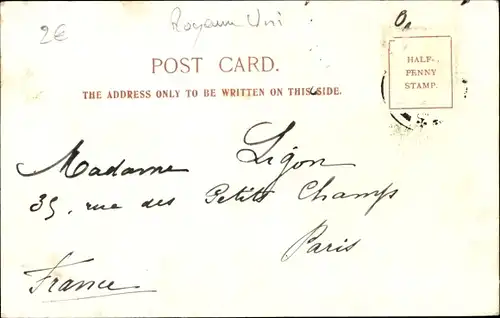 2€ Royaume Uni
POST CARD.
THE ADDRESS ONLY TO BE WRITTEN ON THIS SIDE.
HALF-
PENNY
STAMP.
Madame Ligon
35, rue des Petits Champs
Paris
France